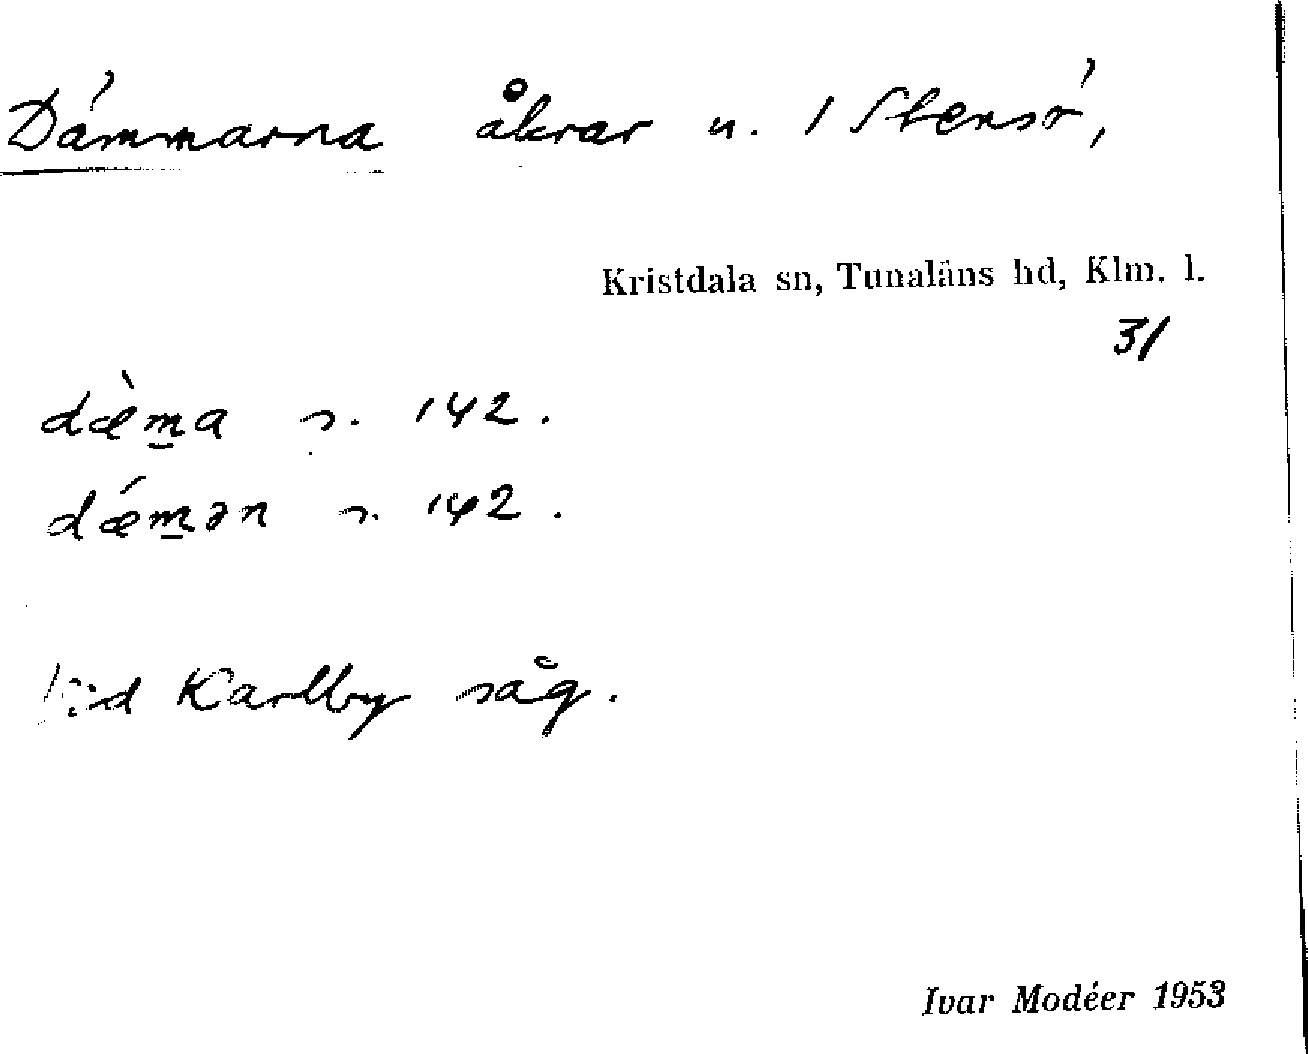 Dämmarna åkrar u. 1 Stensö,
Kristdala sn, Tunaläns hd, Klm. l.
31
dæ̀m̲a s. 142.
dǽm̲ən s. 142.
Vid Karlby såg.
Ivar Modéer 1953